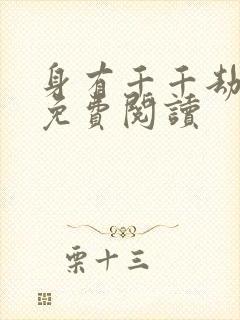 身有千千劫
免費閱讀
栗十三